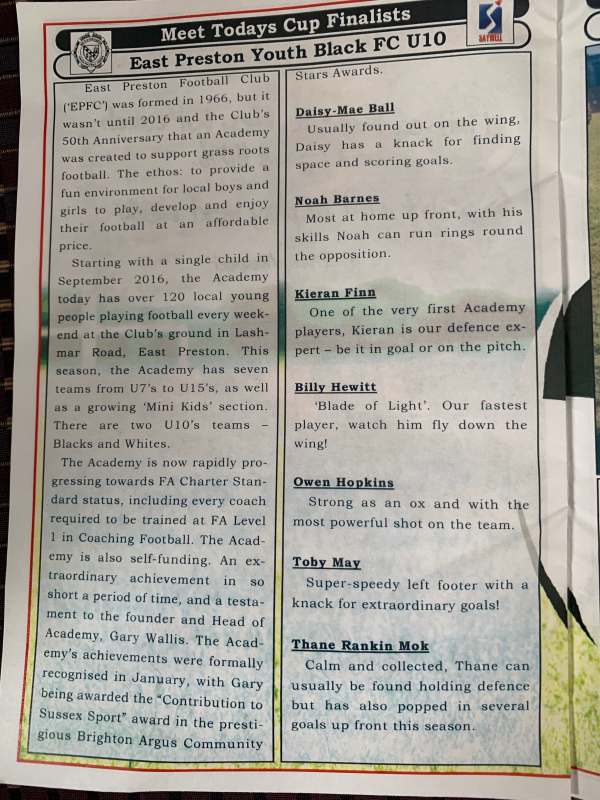 Meet Todays Cup Finalists
East Preston Youth Black FC U10
SAYWELL
East Preston Football Club
('EPFC') was formed in 1966, but it
wasn't until 2016 and the Club's
50th Anniversary that an Academy
was created to support grass roots
football. The ethos: to provide a
fun environment for local boys and
girls to play, develop and enjoy
their football at an affordable
price.
Starting with a single child in
September 2016, the Academy
today has over 120 local young
people playing football every week-
end at the Club's ground in Lash-
mar Road, East Preston. This
season, the Academy has seven
teams from U7's to U15's, as well
as a growing 'Mini Kids' section.
There are two U10's teams –
Blacks and Whites.
The Academy is now rapidly pro-
gressing towards FA Charter Stan-
dard status, including every coach
required to be trained at FA Level
1 in Coaching Football. The Acad-
emy is also self-funding. An ex-
traordinary achievement in so
short a period of time, and a testa-
ment to the founder and Head of
Academy, Gary Wallis. The Acad-
emy's achievements were formally
recognised in January, with Gary
being awarded the "Contribution to
Sussex Sport" award in the presti-
gious Brighton Argus Community
Stars Awards.
Daisy-Mae Ball
Usually found out on the wing,
Daisy has a knack for finding
space and scoring goals.
Noah Barnes
Most at home up front, with his
skills Noah can run rings round
the opposition.
Kieran Finn
One of the very first Academy
players, Kieran is our defence ex-
pert – be it in goal or on the pitch.
Billy Hewitt
'Blade of Light'. Our fastest
player, watch him fly down the
wing!
Owen Hopkins
Strong as an ox and with the
most powerful shot on the team.
Toby May
Super-speedy left footer with a
knack for extraordinary goals!
Thane Rankin Mok
Calm and collected, Thane can
usually be found holding defence
but has also popped in several
goals up front this season.